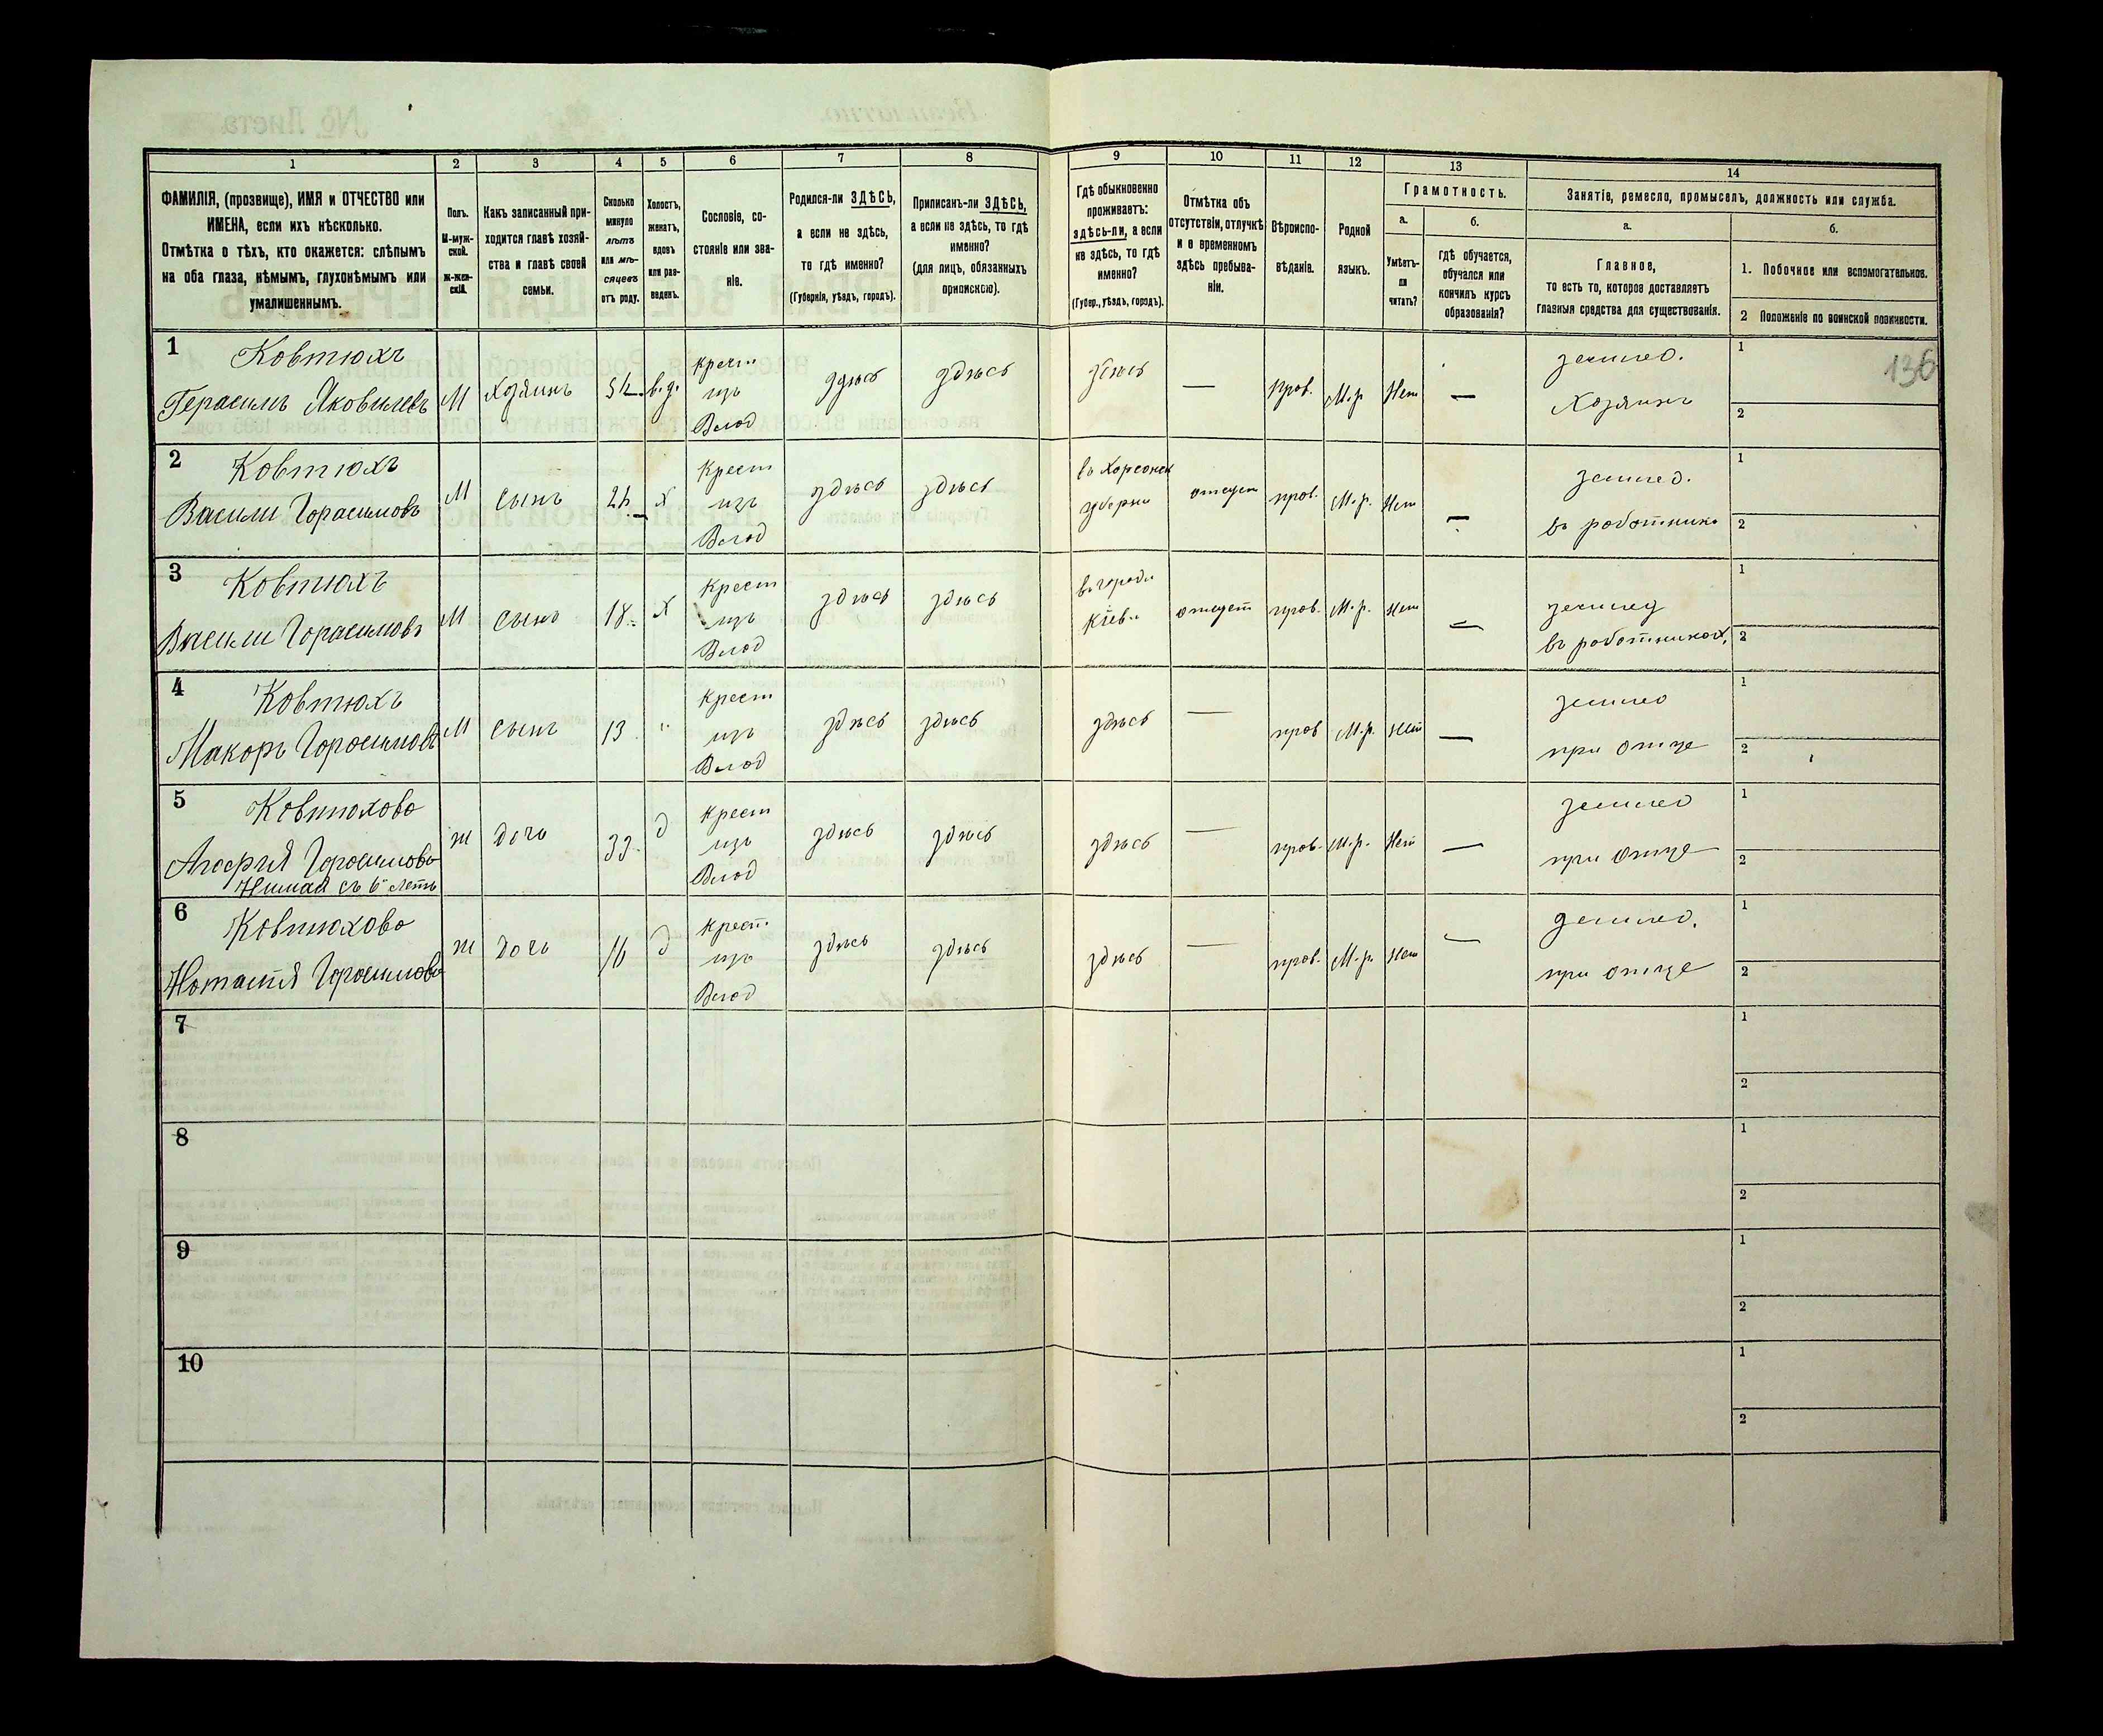 1 2 3 4 5 6 7 8 9 10 11 12 13 14
ФАМИЛІЯ, (прозвище), ИМЯ и ОТЧЕСТВО или
ИМЕНА, если ихъ нѣсколько.
Отмѣтка о тѣхъ, кто окажется: слѣпымъ
на оба глаза, нѣмымъ, глухонѣмымъ или
умалишеннымъ.
Полъ.
М-муж-
ской.
Ж-жен-
скій.
Какъ записанный при-
ходится главѣ хозяй-
ства и главѣ своей
семьи.
Сколько
минуло
лѣтъ
или мѣ-
сяцевъ
отъ роду.
Холостъ,
женатъ,
вдовъ
или раз-
веденъ.
Сословіе, со-
стояніе или зва-
ніе.
Родился-ли ЗДѢСЬ,
а если не здѣсь,
то гдѣ именно?
(Губернія, уѣздъ, городъ).
Приписанъ-ли ЗДѢСЬ,
а если не здѣсь, то гдѣ
именно?
(для лицъ, обязанныхъ
припискою).
Гдѣ обыкновенно
проживаетъ:
здѣсь-ли, а если
не здѣсь, то гдѣ
именно?
(Губер., уѣздъ, городъ).
Отмѣтка объ
отсутствіи, отлучкѣ
и о временномъ
здѣсь пребыва-
ніи.
Вѣроиспо-
вѣданіе.
Родной
языкъ.
Грамотность.
а.
Умѣетъ-
ли
читать?
б.
гдѣ обучается,
обучался или
кончилъ курсъ
образованія?
Занятіе, ремесло, промыселъ, должность или служба.
а.
Главное,
то есть то, которое доставляетъ
главныя средства для существованія.
б.
1. Побочное или вспомогательное.
2 Положеніе по воинской повинности.
136
1 Ковтюхъ
Герасимъ Яковилевъ
М
Хозяинъ
54
в.д.
крест
изъ
Влод
здѣсь
здѣсь
здѣсь
—
Пров.
М.р
Нет
—
землед.
Хозяинъ
1
2
2 Ковтюхъ
Васили Горасимовъ
М
сынъ
24
х
Крест
изъ
Влод
здѣсь
здѣсь
въ Херсонск
губерни
отсут
пров.
М.р.
Нет
—
землед.
въ работник
1
2
3 Ковтюхъ
Васили Горасимовъ
М
сынъ
18
х
Крест
изъ
Влод
здѣсь
здѣсь
въ городи
Кіеви
отсут
пров.
М.р.
нет
—
землед
въ работникох
1
2
4 Ковтюхъ
Макоръ Горосимовъ
М
сынъ
13
"
крест
изъ
Влод
здѣсь
здѣсь
здѣсь
—
пров
М.р.
нет
—
землед
при отце
1
2
5 Ковтюхово
Агофия Горосимово
Нимая съ 6 летъ
ж
дочь
33
д
крест
изъ
Влод
здѣсь
здѣсь
здѣсь
—
пров.
М.р.
Нет
—
землед
при отце
1
2
6 Ковтюхово
Нотастя Горосимово
ж
дочь
16
д
крест.
изъ
Влод
здѣсь
здѣсь
здѣсь
—
пров.
М.р.
нет
—
землед.
при отце
1
2
7
1
2
8
1
2
9
1
2
10
1
2